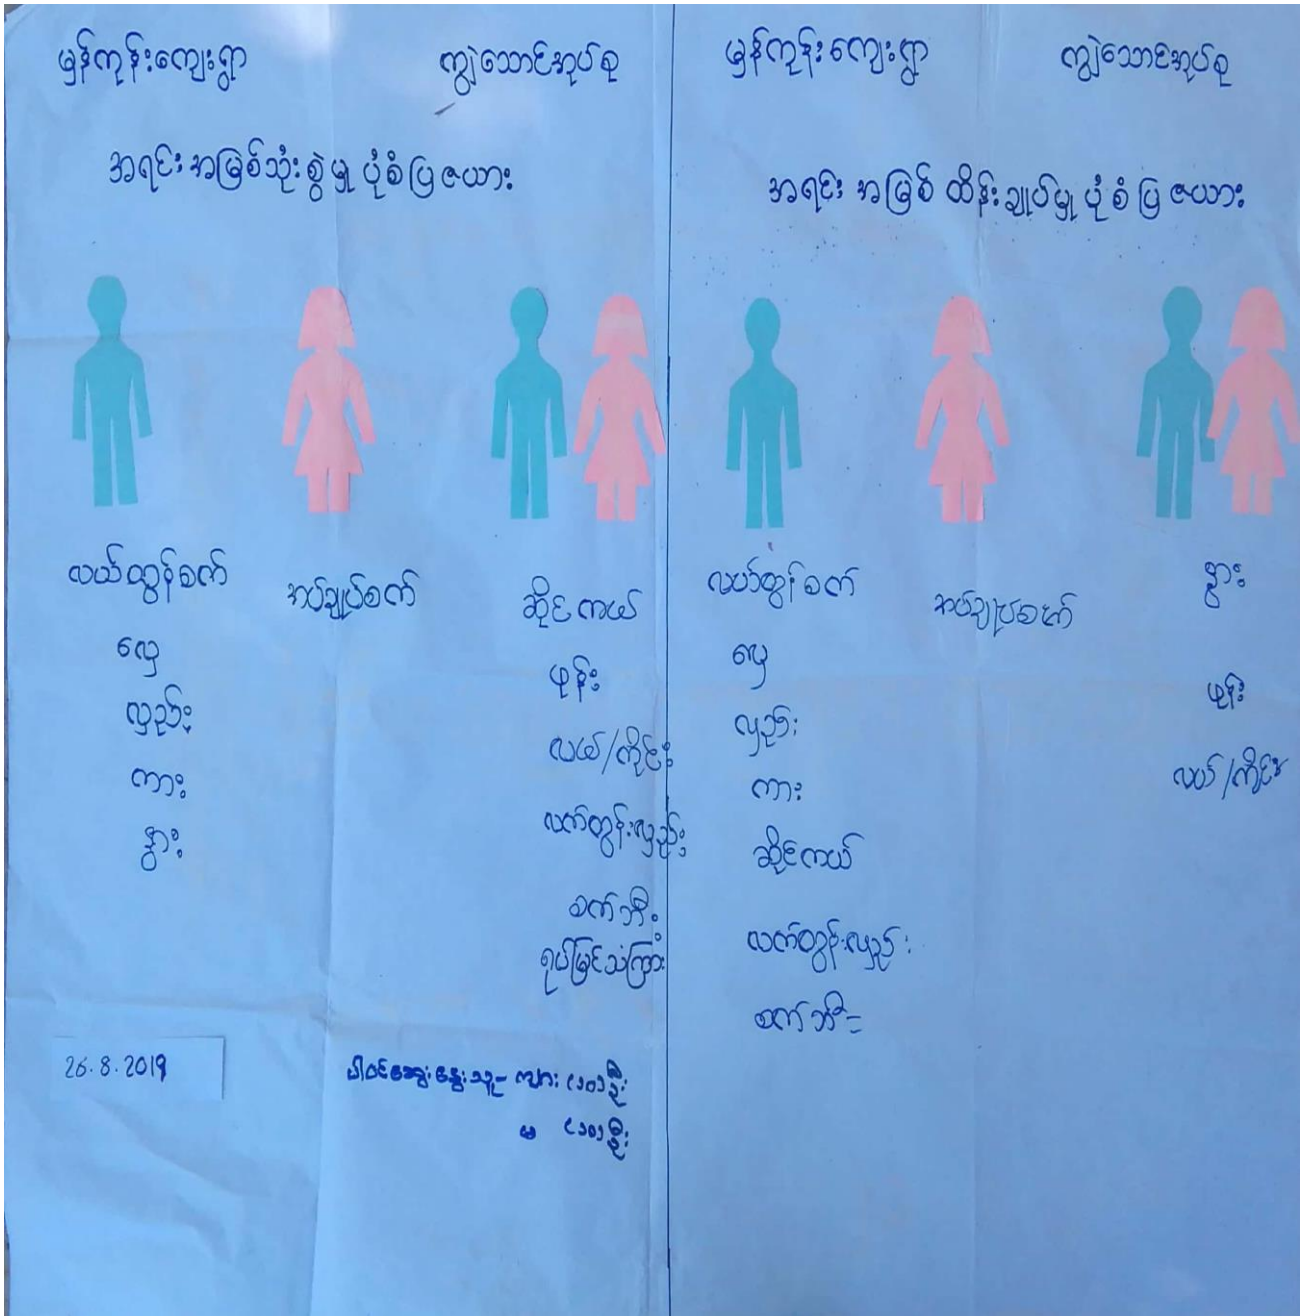 မှန်ကုန်းကျေးရွာ ကျွဲသောင်အုပ်စု
အရင်းအမြစ်သုံးစွဲမှု ပုံစံပြဇယား
လယ်ထွန်စက်
လှေ
လှည်း
ကား
နွား
အပ်ချုပ်စက်
ဆိုင်ကယ်
ဖုန်း
လယ်/ကိုင်း
လက်တွန်းလှည်း
စက်ဘီး
ရုပ်မြင်သံကြား
26.8.2019
ပါဝင်ဆွေးနွေးသူ- ကျား (၁၀)ဦး
မ (၁၀)ဦး
မှန်ကုန်းကျေးရွာ ကျွဲသောင်အုပ်စု
အရင်းအမြစ် ထိန်းချုပ်မှု ပုံစံပြဇယား
လယ်ထွန်စက်
လှေ
လှည်း
ကား
ဆိုင်ကယ်
လက်တွန်းလှည်း
စက်ဘီး
အပ်ချုပ်စက်
နွား
ဖုန်း
လယ်/ကိုင်း